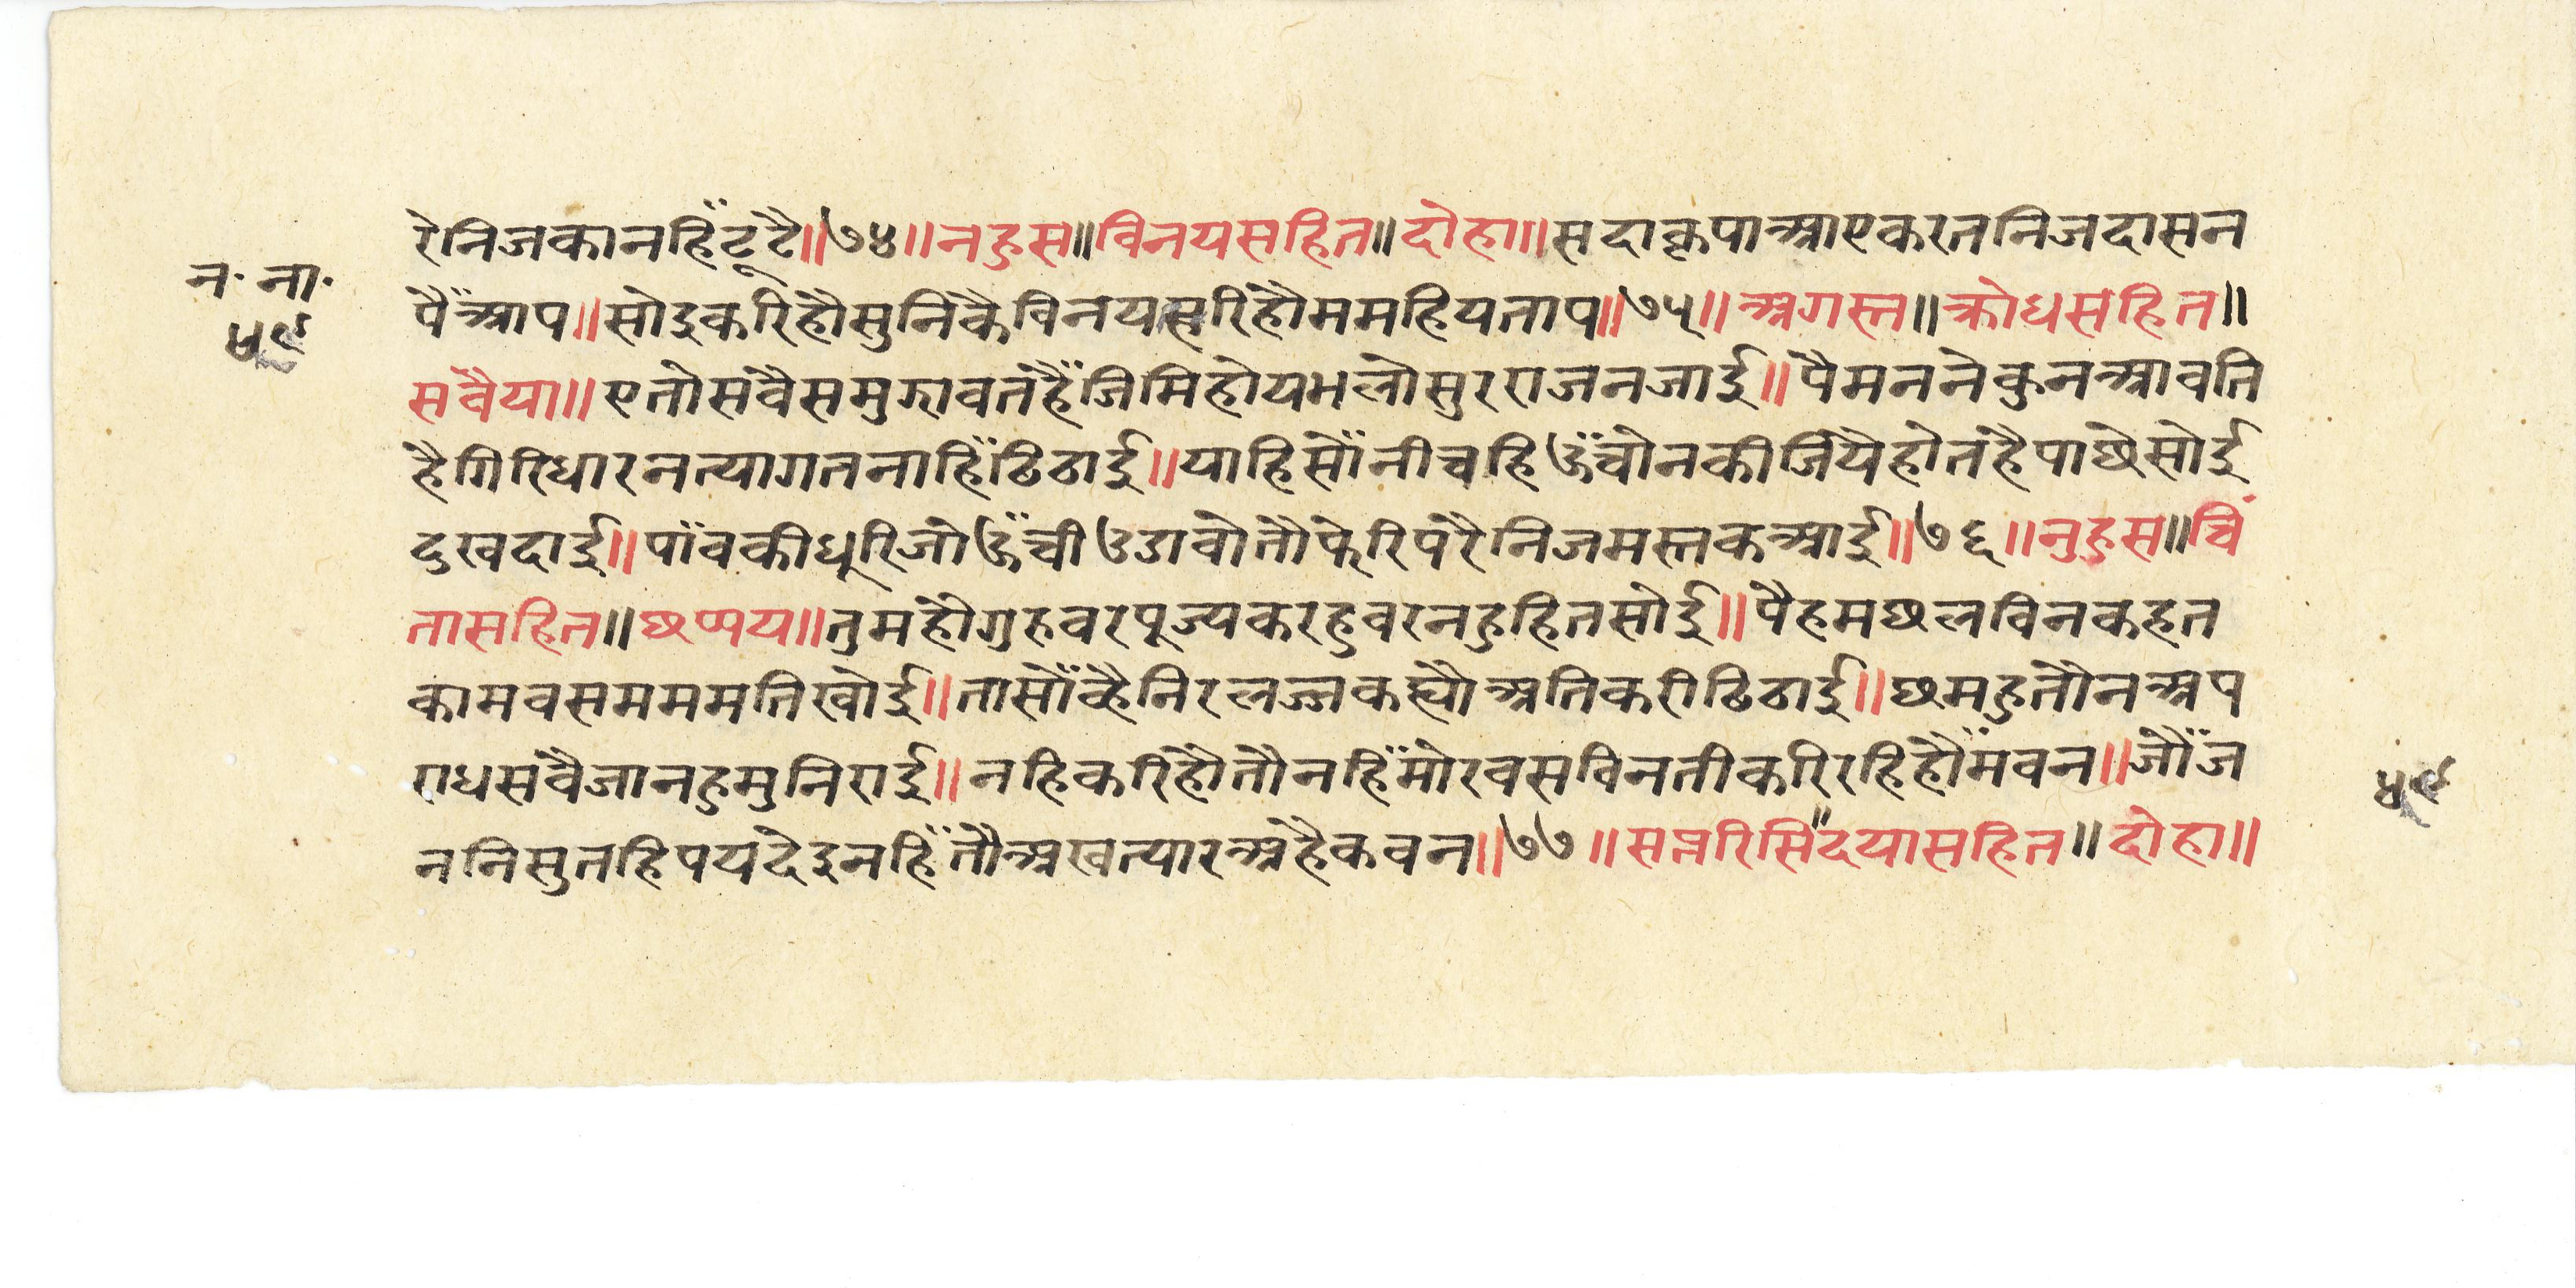 रेनिजकानहिँटूटै॥७४॥नहुस॥विनयसहित॥दोहा॥सदाकृपाआएकरतनिजदासन
न॰ ना॰
पैँआप॥सोइकरिहौसुनिकैविनयहरिहौममहियताप॥७५॥अगस्त॥क्रोधसहित॥
५९
सवैया॥एतोसवैसमुझावतहैँजिमिहोयभलोसुरराजनजाई॥पैमननेकुनआवति
हैगिरिधारनत्यागतनाहिँढिठाई॥याहिसोँनीचहिऊँचोनकीजियेहोतहैपाछेसोई
दुखदाई॥पाँवकीधूरिजोऊँचीउडावोतौफेरिपरैनिजमस्तकआई॥७६॥नुहुस॥चिं
तासहित॥छप्पय॥तुमहौगुरुवरपूज्यकरहुवरनहुहितसोई॥पैहमछलविनकहत
कामवसमममतिखोई॥तासोँव्हैनिरलज्जकह्यौअतिकरीढिठाई॥छमहुतौनअप
राधसवैजानहुमुनिराई॥नहिकरिहौतौनहिँमोरवसविनतीकरिरहिहौँमवन॥जौँज
५९
ननिसुतहिपयदेइनहिँतौअखत्यारअहैकवन॥७७॥सप्तरिसि॥दयासहित॥दोहा॥